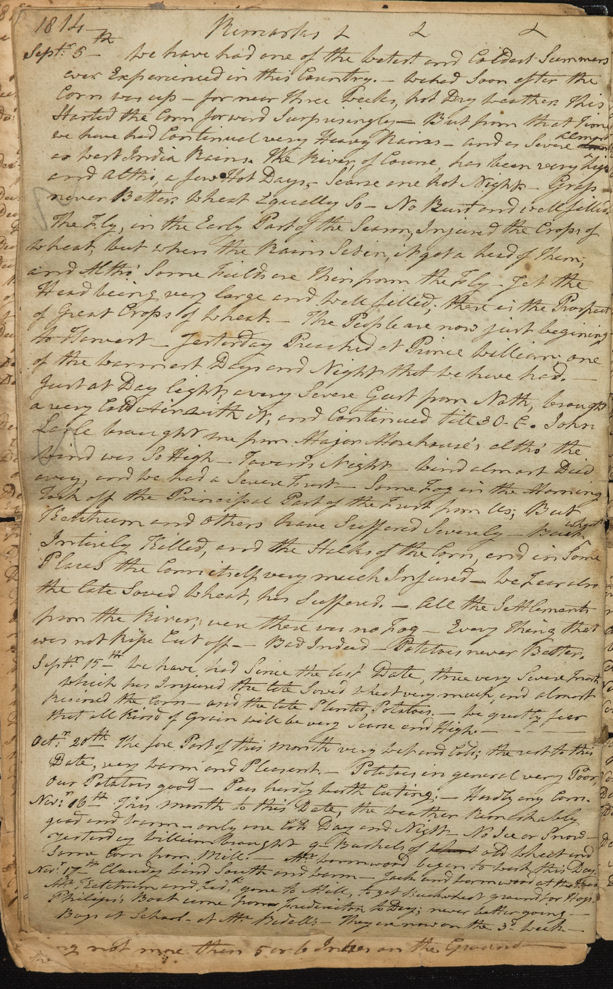 1814 Remarks & & &
Septr. 5th We have had one of the wetest and Coldest Summers
ever Experienced in this Country. — Wked Soon after the
Corn was up — for near three Weeks, hot Dry weather. This
Started the Corn forward Surpursingly — But from that Time
we have had Continual very Heavy Rains — and as Severe almost
as West India Rains. The River, of Course, has been very high
and altho' a few Hot Days, Scarse one hot Night — Grass
never Better, Wheat Equally So — No Rust and well filled
The Fly, in the Early Part of the Season, Injured the Crops of
Wheat, but when the Rains Set in, it got a head of them,
and altho' Some fields are thin from the Fly — Yet the
Head being very large and well filled, there is the Prospect
of Great Crops of Wheat — The People are now just begining
to Harvest — Yesterday Preached at Prince William one
of the warmest Days and Night that we have had. —
Just at Day light, a very Severe Gust from Noth, brought
a very Cold Air with it, and Continued till 3 O.C. John
brought me from Major Morehouse's altho' the
Wind was So High — Towards Night — Wind almost Died
away, and we had a Severe Frost — Some Fog in the Morning,
Took off the Principal Part of the Frost from Us; But
Ketchum and others have Suffered Severely — Buckwheat
Intirely Killed, and the Stalks of the Corn, and in Some
Places the Corn itself very much Injured — We Fear also
the late Sowed Wheat, has Suffered. — All the Settlements
from the River, were there was no Fog — Every Thing that
was not Ripe Cut off — Bad Indeed — Potatoes never Better.
Septr. 15th We have had Since the last Date, three very Severe Frosts
which has Injured the late Sowed wheat very much, and almost
the Corn — and the late Planted Potatoes. — We greatly fear
that all Kind of Grain will be very Scarse and High. —
Octr. 20th The fore Part of this month very wet and Cold; the rest to this
Date, very warm and Pleasent. — Potatoes in general very Poor
Our Potatoes good — Peas hardly worth Cutting. — Hardly any Corn.
Novr. 16th This month to this Date, the weather Remarkably
good and warm — only one Cold Day and Night — No Ice or Snow —
Yesterday William brought 9 Bushels of old wheat and
Some Corn from Mill. — Mr. Wormwood began to work this Day
Novr. 17th Cloudy Wind South and warm — Jack and Wormwood at the
Mr. Ketchum and gone to Mill, to get Buckwheat ground for Hogs
Philips's Boat came from Fredericton to Day; never better going —
Boys at School — at Mr. Bidells — They are now on the 3d. week —
not more then 5 or 6 Inches on the Ground —